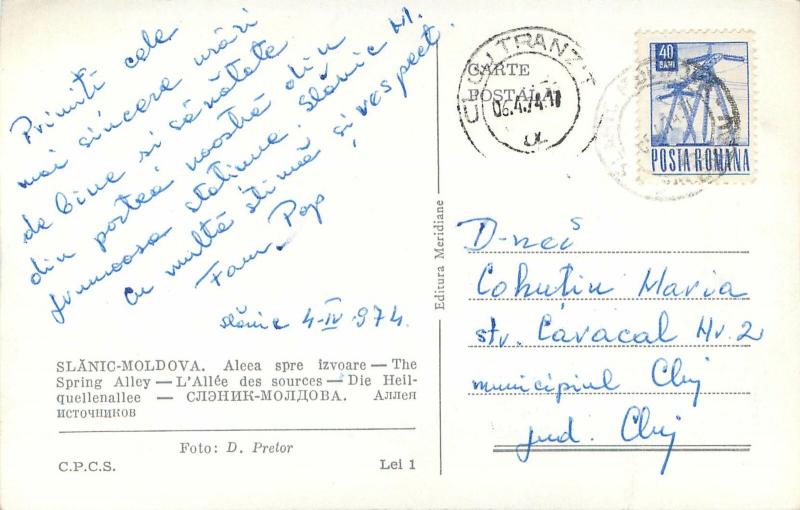 Primiți cele
mai sincere urări
de bine și sănătate
din partea noastră din
frumoasa stațiune Slănic M.
cu multă stimă și respect.
Fam. Pop
Slănic 4-IV 974.
SLĂNIC-MOLDOVA. Aleea spre izvoare — The
Spring Alley — L'Allée des sources — Die Heil-
quellenallee — СЛЭНИК-МОЛДОВА. Аллея
источников
Foto: D. Pretor
C.P.C.S. Lei 1
Editura Meridiane
CARTE
POSTALĂ
CLUJ TRANZIT
06.4.74.
40
BANI
POSTA ROMANA
D-nei
Cohuțiu Maria
str. Caracal Nr. 2
municipiul Cluj
jud. Cluj